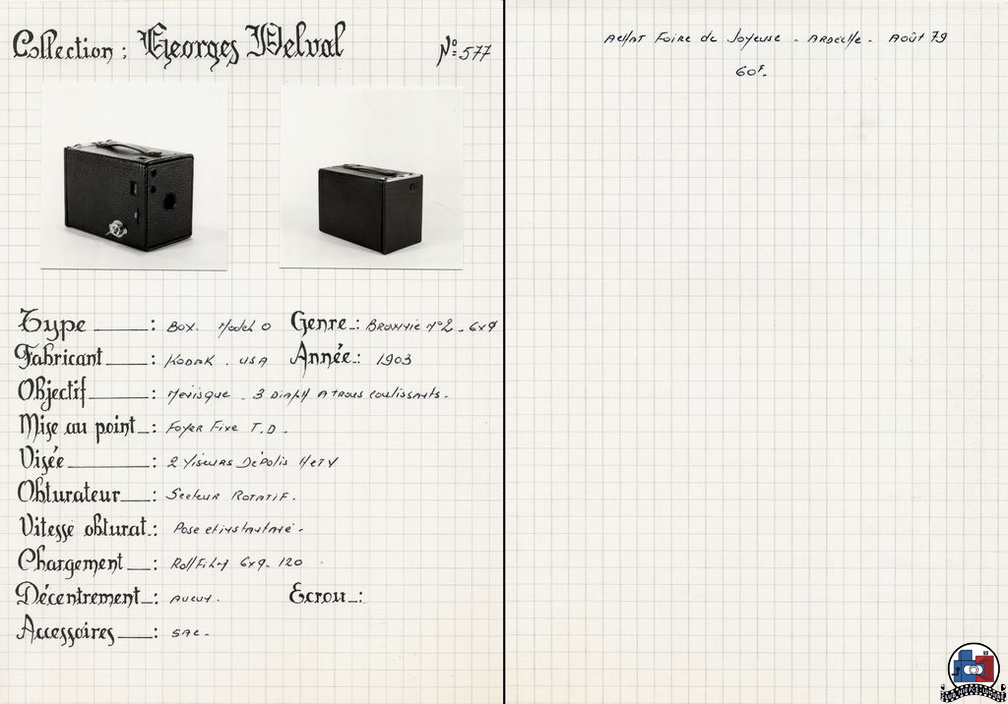 Collection : Georges Delval N° 577
Type : Box. Model O Genre : Brownie N°2 - 6x9
Fabricant : Kodak . USA Année : 1903
Objectif : Ménisque - 3 Diaph A trous coulissants.
Mise au point : Foyer Fixe T.D.
Visée : 2 Viseurs Dépolis H et V
Obturateur : Secteur Rotatif.
Vitesse obturat. : Pose et instantané.
Chargement : RollFilm 6x9 - 120
Décentrement : Aucun. Ecrou :
Accessoires : SAC.
Achat Foire de Joyeuse - Ardèche - Août 79
60F.